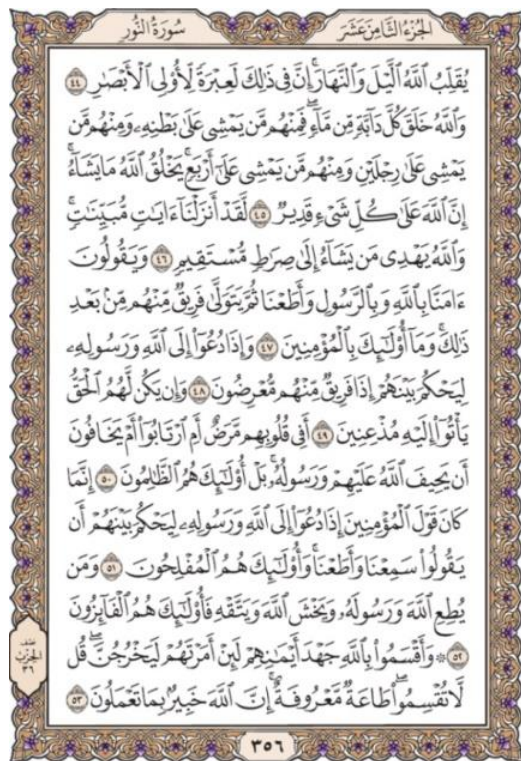 الجُزْءُ الثَّامِنَ عَشَرَ
سُورَةُ النُّورِ
يُقَلِّبُ اللَّهُ الَّيْلَ وَالنَّهَارَ ۚ إِنَّ فِى ذَٰلِكَ لَعِبْرَةً لِّأُو۟لِى الْأَبْصَٰرِ ٤٤
وَاللَّهُ خَلَقَ كُلَّ دَآبَّةٍ مِّن مَّآءٍ ۖ فَمِنْهُم مَّن يَمْشِى عَلَىٰ بَطْنِهِۦ وَمِنْهُم مَّن
يَمْشِى عَلَىٰ رِجْلَيْنِ وَمِنْهُم مَّن يَمْشِى عَلَىٰٓ أَرْبَعٍ ۚ يَخْلُقُ اللَّهُ مَا يَشَآءُ ۚ
إِنَّ اللَّهَ عَلَىٰ كُلِّ شَىْءٍ قَدِيرٌ ٤٥ لَّقَدْ أَنزَلْنَآ ءَايَٰتٍ مُّبَيِّنَٰتٍ ۚ
وَاللَّهُ يَهْدِى مَن يَشَآءُ إِلَىٰ صِرَٰطٍ مُّسْتَقِيمٍ ٤٦ وَيَقُولُونَ
ءَامَنَّا بِاللَّهِ وَبِالرَّسُولِ وَأَطَعْنَا ثُمَّ يَتَوَلَّىٰ فَرِيقٌ مِّنْهُم مِّنۢ بَعْدِ
ذَٰلِكَ ۚ وَمَآ أُو۟لَٰٓئِكَ بِالْمُؤْمِنِينَ ٤٧ وَإِذَا دُعُوٓا۟ إِلَى اللَّهِ وَرَسُولِهِۦ
لِيَحْكُمَ بَيْنَهُمْ إِذَا فَرِيقٌ مِّنْهُم مُّعْرِضُونَ ٤٨ وَإِن يَكُن لَّهُمُ الْحَقُّ
يَأْتُوٓا۟ إِلَيْهِ مُذْعِنِينَ ٤٩ أَفِى قُلُوبِهِم مَّرَضٌ أَمِ ارْتَابُوٓا۟ أَمْ يَخَافُونَ
أَن يَحِيفَ اللَّهُ عَلَيْهِمْ وَرَسُولُهُۥ ۚ بَلْ أُو۟لَٰٓئِكَ هُمُ الظَّٰلِمُونَ ٥٠ إِنَّمَا
كَانَ قَوْلَ الْمُؤْمِنِينَ إِذَا دُعُوٓا۟ إِلَى اللَّهِ وَرَسُولِهِۦ لِيَحْكُمَ بَيْنَهُمْ أَن
يَقُولُوا۟ سَمِعْنَا وَأَطَعْنَا ۚ وَأُو۟لَٰٓئِكَ هُمُ الْمُفْلِحُونَ ٥١ وَمَن
يُطِعِ اللَّهَ وَرَسُولَهُۥ وَيَخْشَ اللَّهَ وَيَتَّقْهِ فَأُو۟لَٰٓئِكَ هُمُ الْفَآئِزُونَ
٥٢ ۞ وَأَقْسَمُوا۟ بِاللَّهِ جَهْدَ أَيْمَٰنِهِمْ لَئِنْ أَمَرْتَهُمْ لَيَخْرُجُنَّ ۖ قُل
لَّا تُقْسِمُوا۟ ۖ طَاعَةٌ مَّعْرُوفَةٌ ۚ إِنَّ اللَّهَ خَبِيرٌۢ بِمَا تَعْمَلُونَ ٥٣
نصف
الحزب
٣٦
٣٥٦